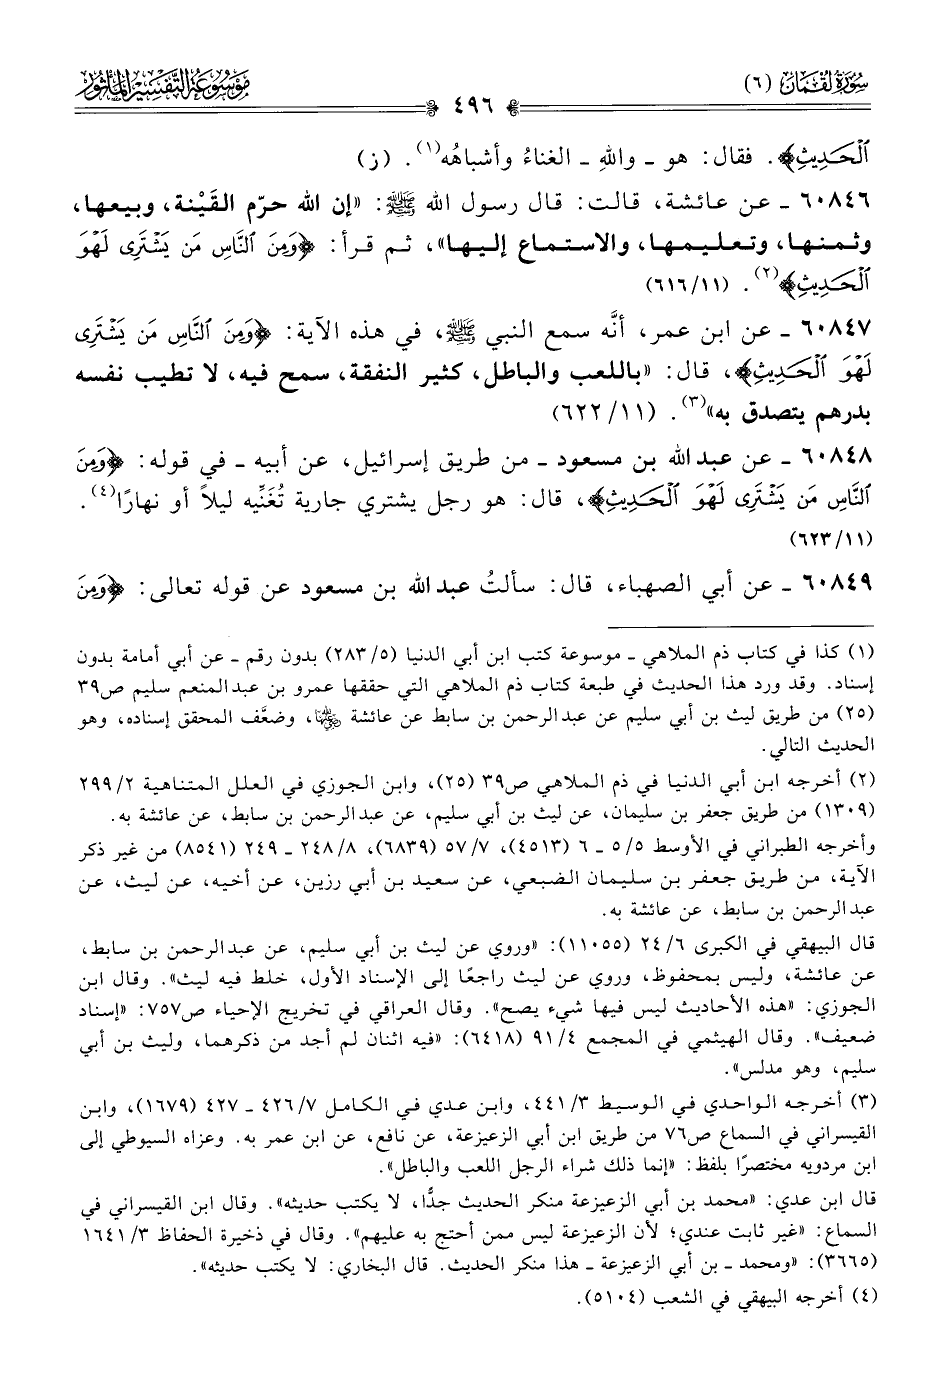 سُورَةُ لُقْمَان (٦)
مَوْسُوعَة التَّفْسِير المَأْثُور
٤٩٦
ٱلْحَدِيثِ﴾. فقال: هو ـ واللهِ ـ الغناءُ وأشباهُه(١). (ز)
٦٠٨٤٦ ـ عن عائشة، قالت: قال رسول الله ﷺ: «إن الله حرّم القَيْنة، وبيعها،
وثمنها، وتعليمها، والاستماع إليها»، ثم قرأ: ﴿وَمِنَ ٱلنَّاسِ مَن يَشْتَرِى لَهْوَ
ٱلْحَدِيثِ﴾(٢). (٦١٦/١١)
٦٠٨٤٧ ـ عن ابن عمر، أنَّه سمع النبي ﷺ، في هذه الآية: ﴿وَمِنَ ٱلنَّاسِ مَن يَشْتَرِى
لَهْوَ ٱلْحَدِيثِ﴾، قال: «باللعب والباطل، كثير النفقة، سمح فيه، لا تطيب نفسه
بدرهم يتصدق به»(٣). (٦٢٢/١١)
٦٠٨٤٨ ـ عن عبد الله بن مسعود ـ من طريق إسرائيل، عن أبيه ـ في قوله: ﴿وَمِنَ
ٱلنَّاسِ مَن يَشْتَرِى لَهْوَ ٱلْحَدِيثِ﴾، قال: هو رجل يشتري جارية تُغَنِّيه ليلاً أو نهارًا(٤).
(٦٢٣/١١)
٦٠٨٤٩ ـ عن أبي الصهباء، قال: سألتُ عبد الله بن مسعود عن قوله تعالى: ﴿وَمِنَ
(١) كذا في كتاب ذم الملاهي ـ موسوعة كتب ابن أبي الدنيا (٢٨٣/٥) بدون رقم ـ عن أبي أمامة بدون
إسناد. وقد ورد هذا الحديث في طبعة كتاب ذم الملاهي التي حققها عمرو بن عبد المنعم سليم ص٣٩
(٢٥) من طريق ليث بن أبي سليم عن عبد الرحمن بن سابط عن عائشة رضي الله عنها، وضعَّف المحقق إسناده، وهو
الحديث التالي.
(٢) أخرجه ابن أبي الدنيا في ذم الملاهي ص٣٩ (٢٥)، وابن الجوزي في العلل المتناهية ٢٩٩/٢
(١٣٠٩) من طريق جعفر بن سليمان، عن ليث بن أبي سليم، عن عبد الرحمن بن سابط، عن عائشة به.
وأخرجه الطبراني في الأوسط ٥/٥ ـ ٦ (٤٥١٣)، ٥٧/٧ (٦٨٣٩)، ٢٤٨/٨ ـ ٢٤٩ (٨٥٤١) من غير ذكر
الآية، من طريق جعفر بن سليمان الضبعي، عن سعيد بن أبي رزين، عن أخيه، عن ليث، عن
عبد الرحمن بن سابط، عن عائشة به.
قال البيهقي في الكبرى ٢٤/٦ (١١٠٥٥): «وروي عن ليث بن أبي سليم، عن عبد الرحمن بن سابط،
عن عائشة، وليس بمحفوظ، وروي عن ليث راجعًا إلى الإسناد الأول، خلط فيه ليث». وقال ابن
الجوزي: «هذه الأحاديث ليس فيها شيء يصح». وقال العراقي في تخريج الإحياء ص٧٥٧: «إسناد
ضعيف». وقال الهيثمي في المجمع ٩١/٤ (٦٤١٨): «فيه اثنان لم أجد من ذكرهما، وليث بن أبي
سليم، وهو مدلس».
(٣) أخرجه الواحدي في الوسيط ٤٤١/٣، وابن عدي في الكامل ٤٢٦/٧ ـ ٤٢٧ (١٦٧٩)، وابن
القيسراني في السماع ص٧٦ من طريق ابن أبي الزعيزعة، عن نافع، عن ابن عمر به. وعزاه السيوطي إلى
ابن مردويه مختصرًا بلفظ: «إنما ذلك شراء الرجل اللعب والباطل».
قال ابن عدي: «محمد بن أبي الزعيزعة منكر الحديث جدًّا، لا يكتب حديثه». وقال ابن القيسراني في
السماع: «غير ثابت عندي؛ لأن الزعيزعة ليس ممن أحتج به عليهم». وقال في ذخيرة الحفاظ ١٦٤١/٣
(٣٦٦٥): «ومحمد ـ بن أبي الزعيزعة ـ هذا منكر الحديث. قال البخاري: لا يكتب حديثه».
(٤) أخرجه البيهقي في الشعب (٥١٠٤).